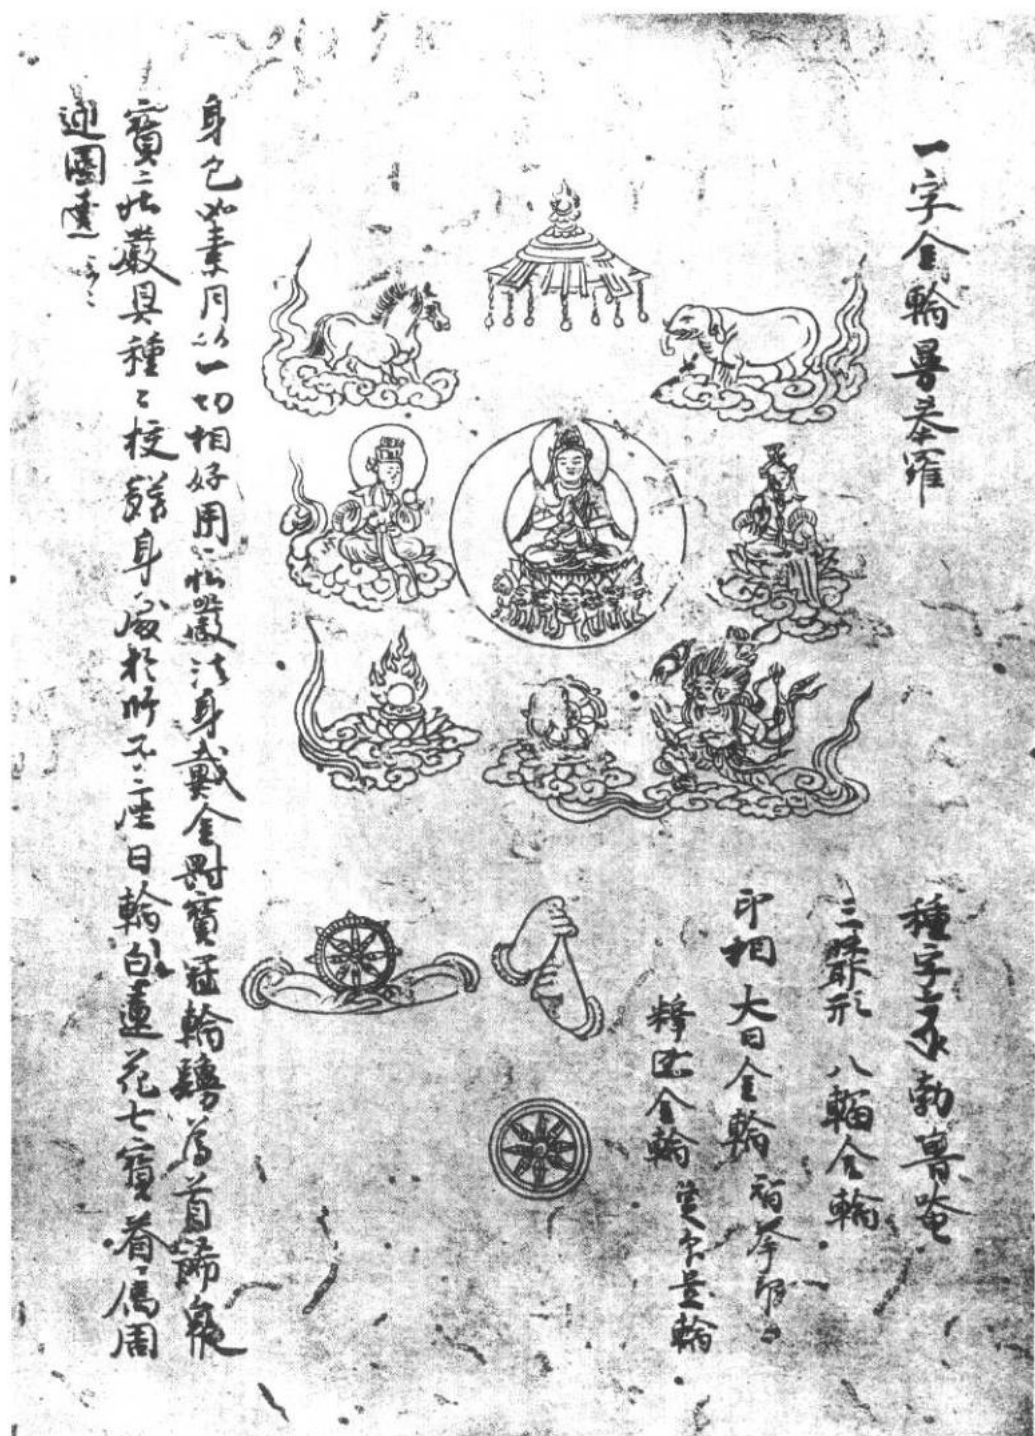 一字金輪曼荼羅
種字 勃嚕唵
三昧耶形 八輻金輪
印相 大日金輪 智拳印
釋迦金輪
身色如素月以一切相好用莊嚴法身戴金剛寶冠輪鬘為首飾眾
寶莊嚴具種々校飾身處於師子座日輪白蓮花七寶 馬周
迊圍遶